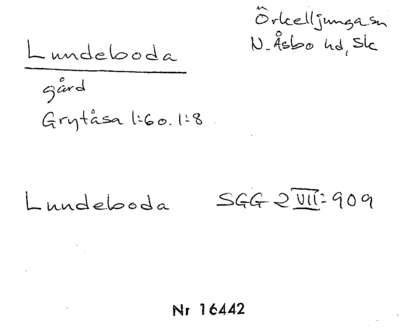 Örkelljunga sn
N. Åsbo hd, Sk
Lundeboda
gård
Grytåsa 1:60. 1:8
Lundeboda SGG 2 VII:909
Nr 16442